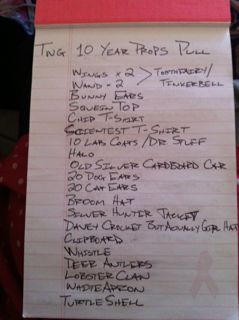 TWG 10 YEAR PROPS PULL
WINGS x 2 > TOOTHFAIRY/
WAND - 2 TINKERBELL
BUNNY EARS
SEQUIN TOP
CHIP T-SHIRT
SCIENTEST T-SHIRT
10 LAB COATS / DR STUFF
HALO
OLD SILVER CARDBOARD CAR
20 DOG EARS
20 CAT EARS
BROOM HAT
SEWER HUNTER JACKET
DAVEY CROCKET BUT ACTUALLY GIRL HAT
CLIPBOARD
WHISTLE
DEER ANTLERS
LOBSTER CLAW
WHITE APRON
TURTLE SHELL